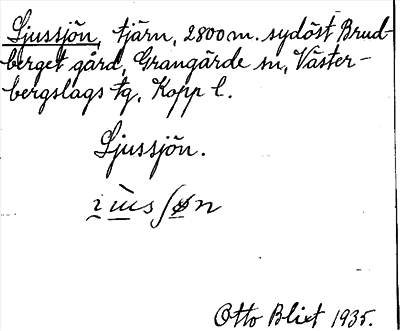 Ljussjön, tjärn, 2800 m. sydöst Brud-
berget gård, Grangärde sn, Väster-
bergslags tg, Kopp l.
Ljussjön.
Otto Blixt 1935.